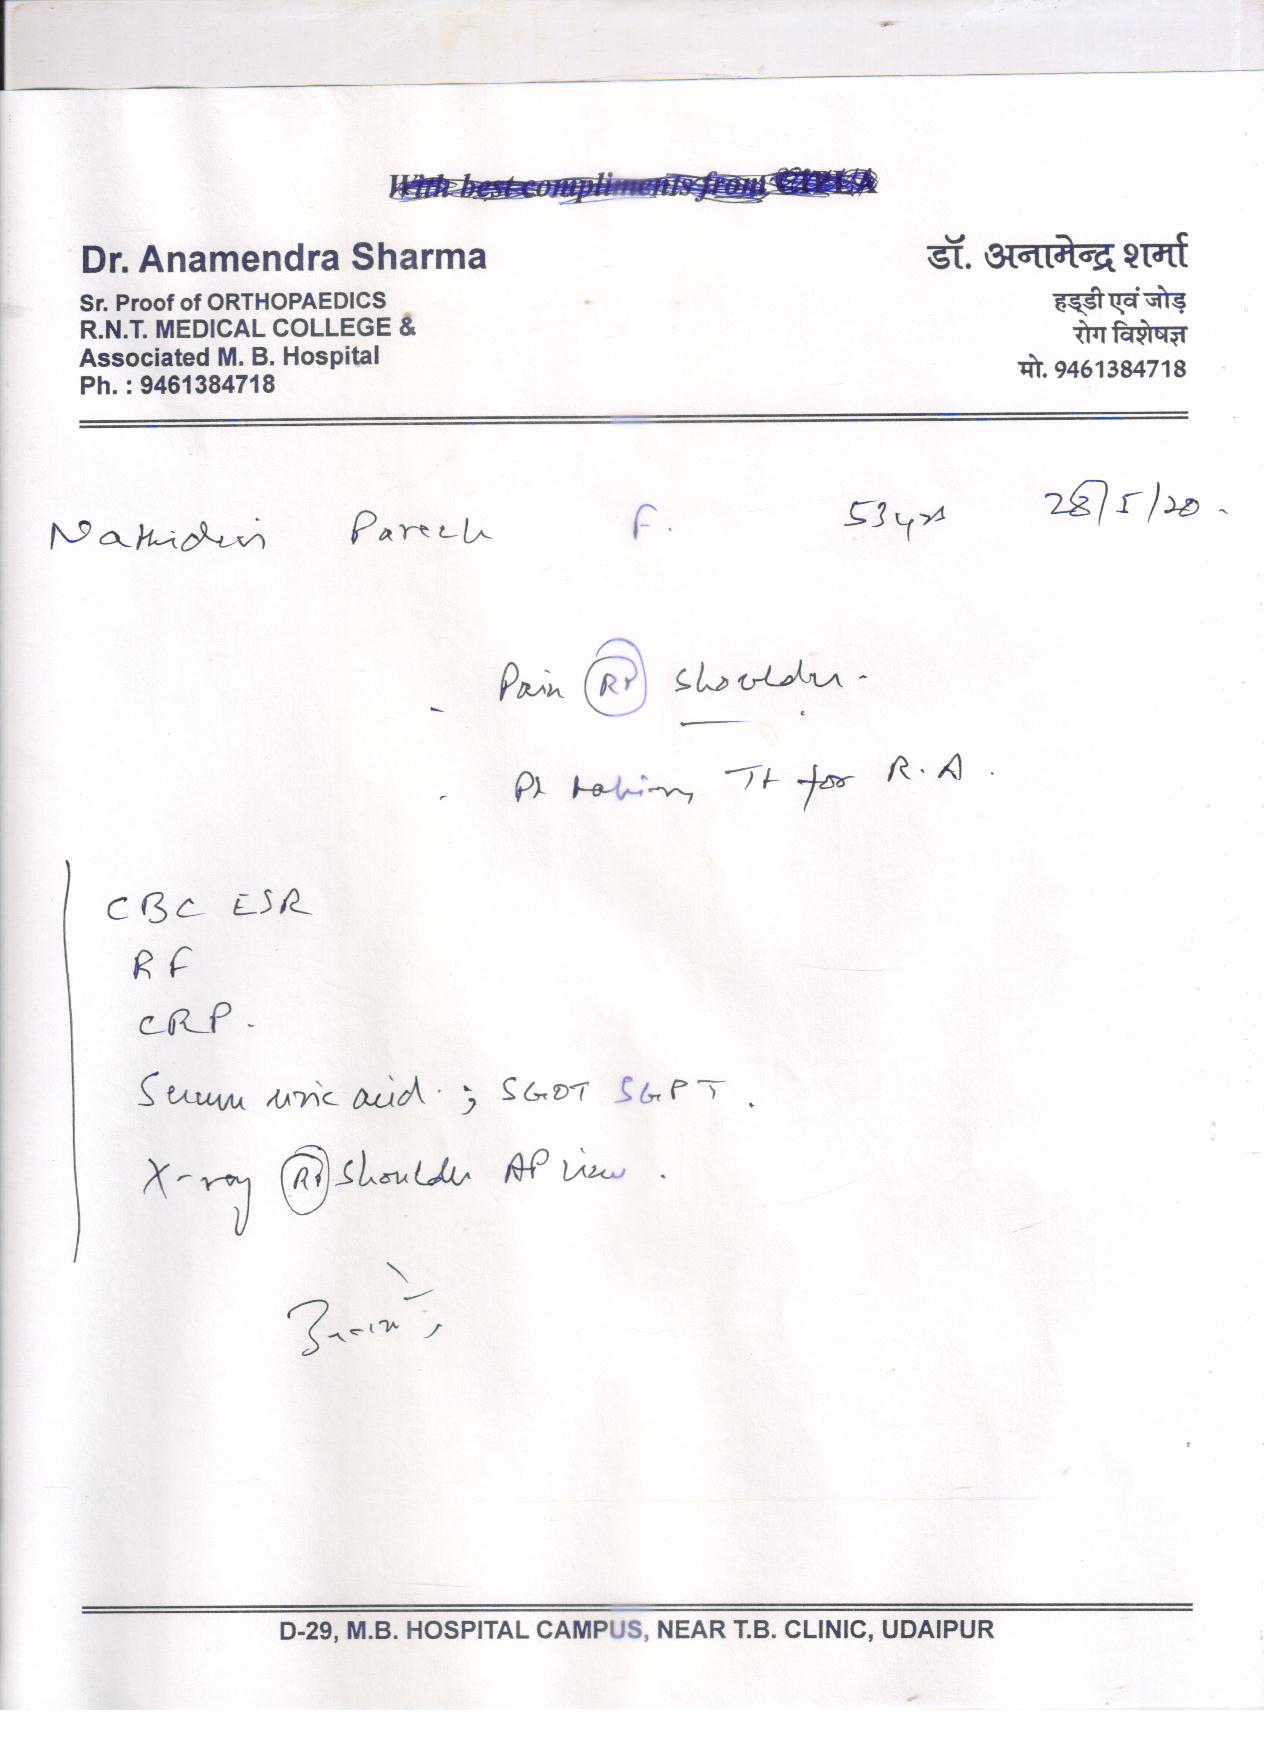 With best compliments from CIPLA
Dr. Anamendra Sharma
Sr. Proof of ORTHOPAEDICS
R.N.T. MEDICAL COLLEGE &
Associated M. B. Hospital
Ph. : 9461384718
डॉ. अनामेन्द्र शर्मा
हड्डी एवं जोड़
रोग विशेषज्ञ
मो. 9461384718
Pareek F. 53 yrs 28/5/20.
- Pain Rt shoulder.
- Pt taking Tt for R.A.
CBC ESR
RF
CRP.
Serum uric acid. ; SGOT SGPT.
X-ray Rt Shoulder AP view.
D-29, M.B. HOSPITAL CAMPUS, NEAR T.B. CLINIC, UDAIPUR